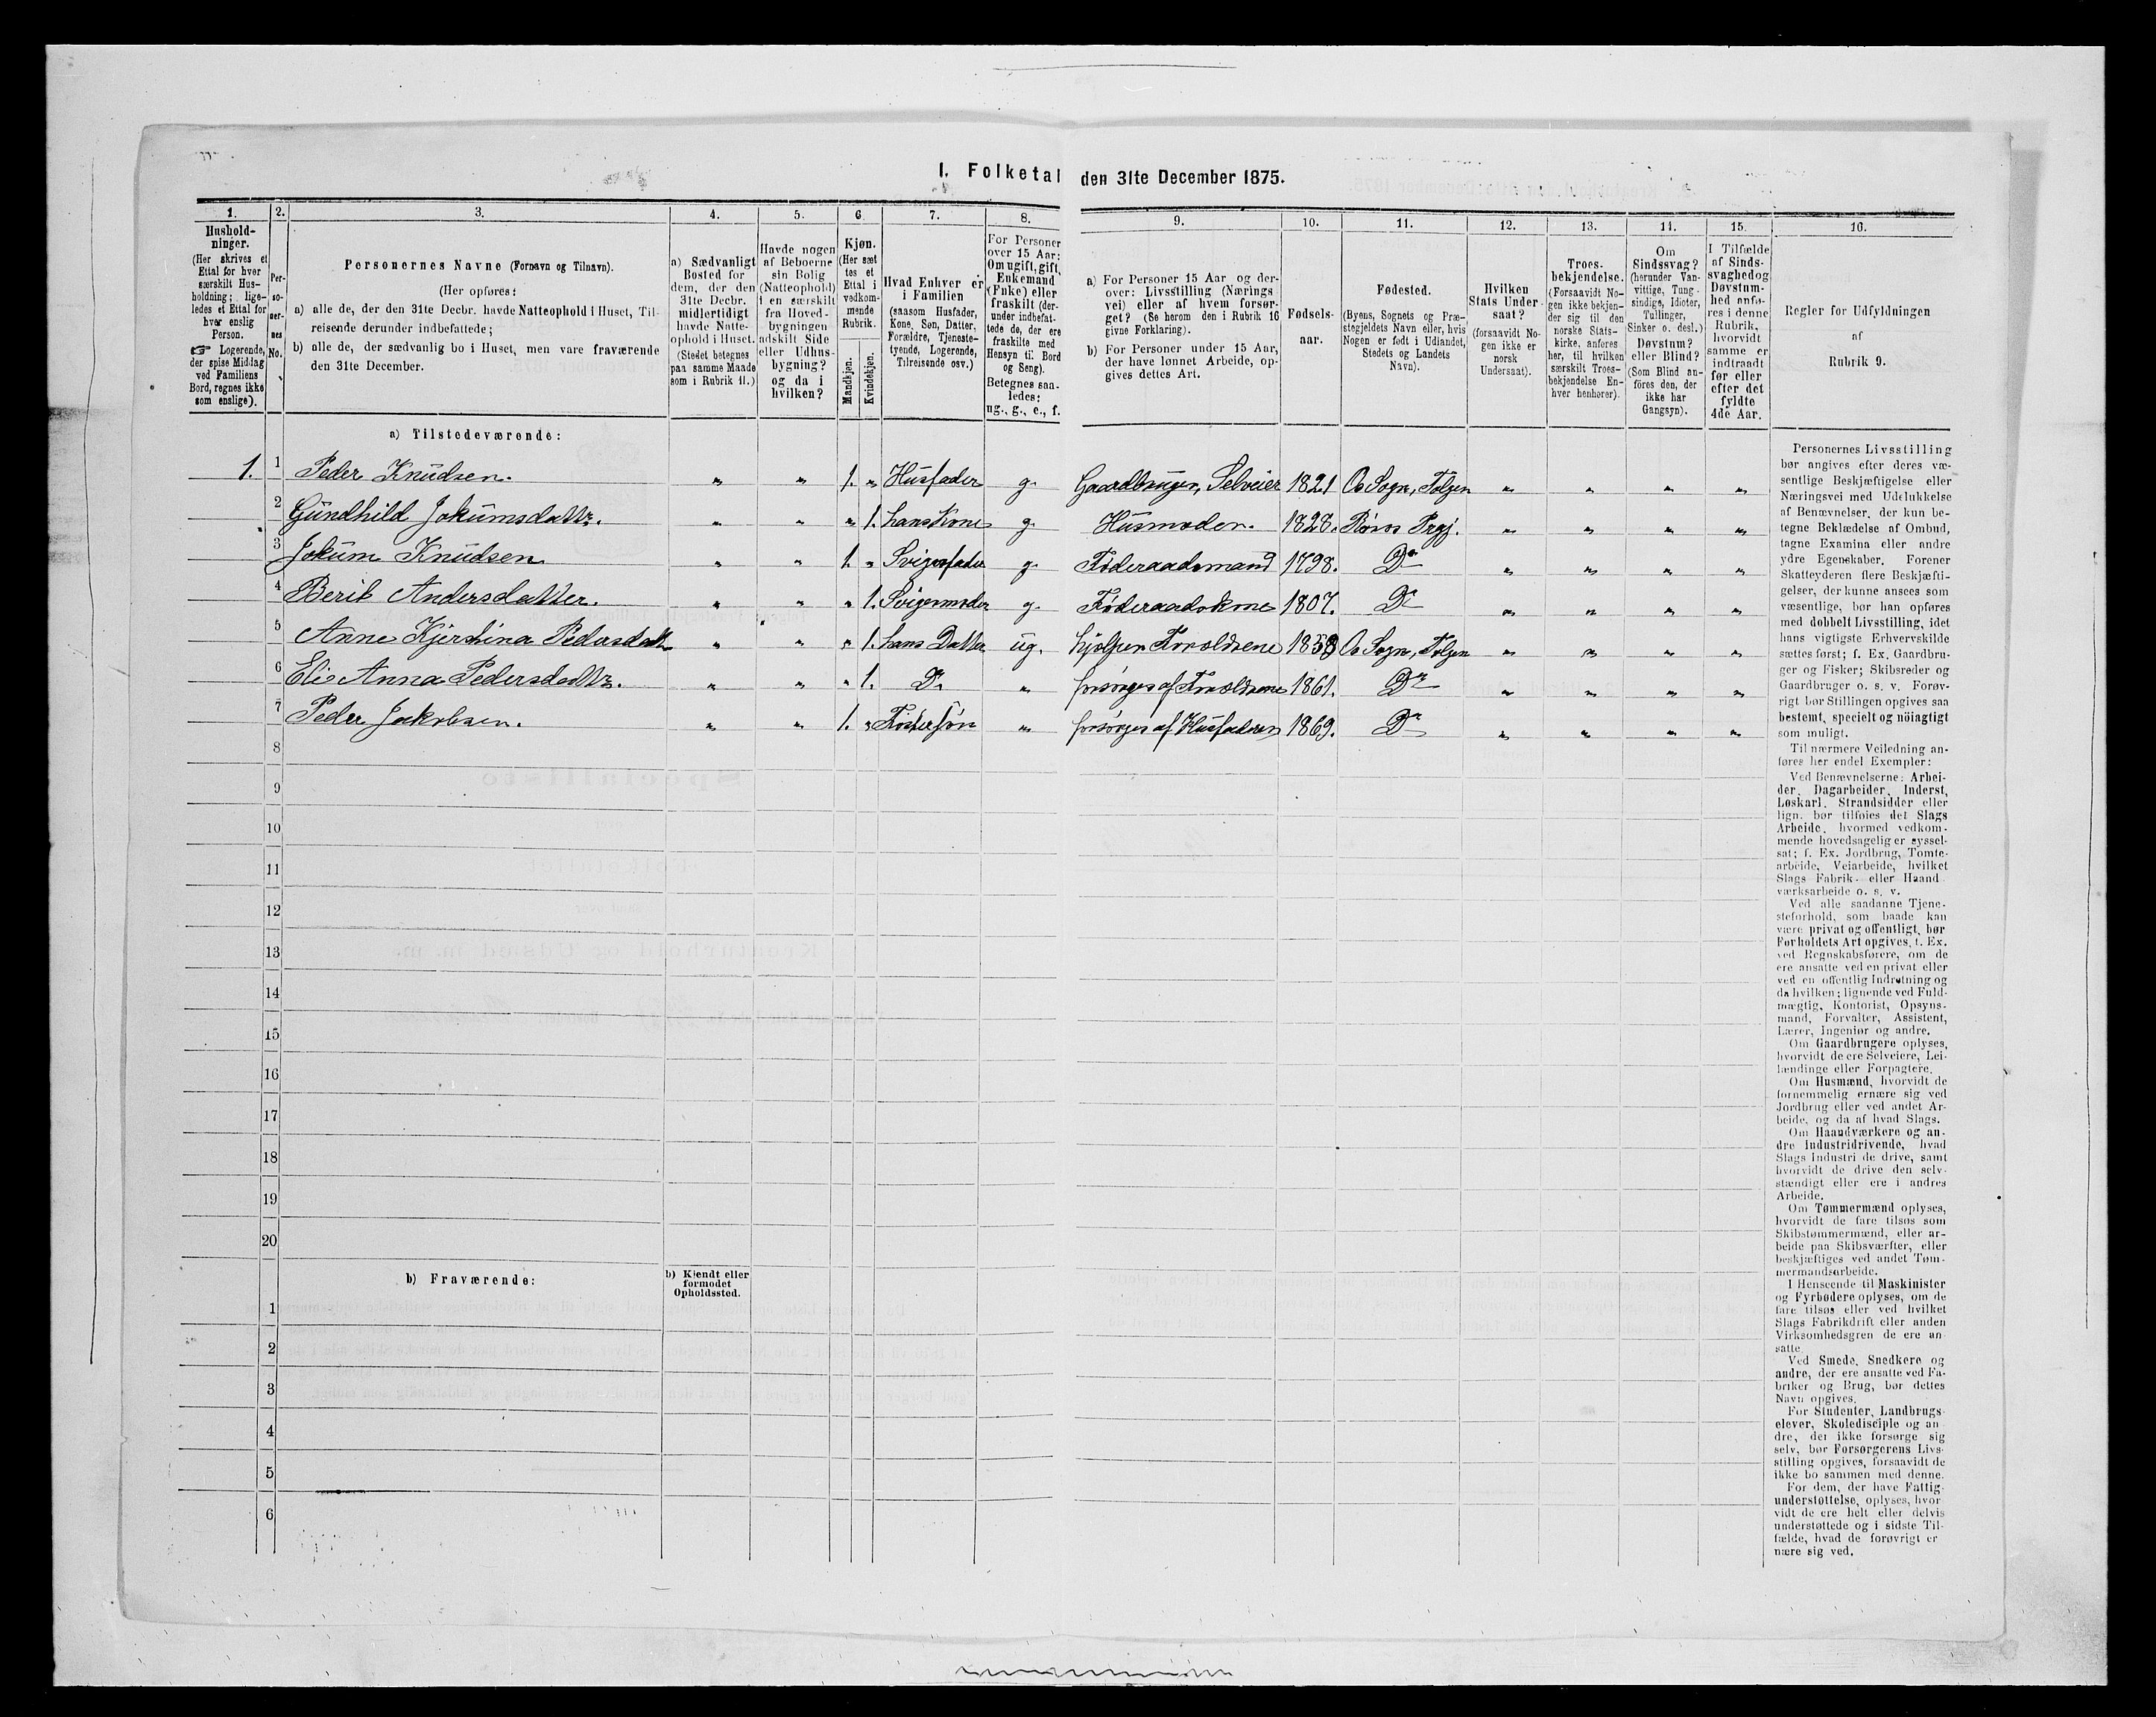 I. Folketal den 31te December 1875.
1.
Hushold-
ninger.
(Her skrives et
Ettal for hver
særskilt Hus-
holdning; lige-
ledes et Ettal for
hver enslig
Person.
☞ Logerende,
der spise Middag
ved Familiens
Bord, regnes ikke
som enslige).
2.
Per-
so-
ner-
nes
No.
3.
Personernes Navne (Fornavn og Tilnavn).
(Her opføres:
a) alle de, der den 31te Decbr. havde Natteophold i Huset, Til-
reisende derunder indbefattede;
b) alle de, der sædvanlig bo i Huset, men vare fraværende
den 31te December.
4.
a) Sædvanligt
Bosted for
dem, der den
31te Decbr.
midlertidigt
havde Natte-
ophold i Huset.
(Stedet betegnes
paa samme Maade
som i Rubrik 11.)
5.
Havde nogen
af Beboerne
sin Bolig
(Natteophold)
i en særskilt
fra Hoved-
bygningen
adskilt Side
eller Udhus-
bygning?
og da i
hvilken?
6.
Kjøn.
(Her sæt
tes et
Ettal i
vedkom-
mende
Rubrik.
Mandkjøn.
Kvindekjøn.
7.
Hvad Enhver er
i Familien
(saasom Husfader,
Kone, Søn, Datter,
Forældre, Tjeneste-
tyende, Logerende,
Tilreisende osv.)
8.
For Personer
over 15 Aar:
Om ugift, gift,
Enkemand
(Enke) eller
fraskilt (der-
under indbefat-
tede de, der ere
fraskilte med
Hensyn til Bord
og Seng).
Betegnes saa-
ledes:
ug., g., e., f.
9.
a) For Personer 15 Aar og der-
over: Livsstilling (Nærings
vei) eller af hvem forsør-
get? (Se herom den i Rubrik 16
givne Forklaring).
b) For Personer under 15 Aar,
der have lønnet Arbeide, op-
gives dettes Art.
10.
Fødsels-
aar.
11.
Fødested.
(Byens, Sognets og Præ-
stegjeldets Navn eller, hvis
Nogen er født i Udlandet,
Stedets og Landets
Navn).
12.
Hvilken
Stats Under-
saat?
(forsaavidt No-
gen ikke er
norsk
Undersaat).
13.
Troes-
bekjendelse.
(Forsaavidt No-
gen ikke bekjen-
der sig til den
norske Stats-
kirke, anføres
her, til hvilken
særskilt Troes-
bekjendelse En-
hver henhører).
14.
Om
Sindssvag?
(herunder Van-
vittige, Tung-
sindige, Idioter,
Tullinger,
Sinker o. desl.)
Døvstum?
eller Blind?
(Som Blind an-
föres den, der
ikke har
Gangsyn).
15.
I Tilfælde
af Sinds-
svaghed og
Døvstum-
hed anfø-
res i denne
Rubrik,
hvorvidt
samme er
indtraadt
før eller
efter det
fyldte
4de Aar.
16.
Regler for Udfyldningen
af
Rubrik 9.
a) Tilstedeværende:
1. 1 Peder Knudsen. " " 1. " Husfader g. Gaardbruger, Selveier 1821 Os Sogn, Tolgen " " " "
2 Gundhild Jokumsdattr. " " " 1. hans Kone g. Husmoder. 1828. Røros Prgj. " " " "
3 Jokum Knudsen " " 1. " Svigerfader g. Føderaadsmand 1798. Do " " " "
4 Berit Andersdatter. " " " 1. Svigermoder g. Føderaadskone 1807. Do " " " "
5 Anne Kjerstina Pedersdattr " " " 1. hans Datter ug. hjelper Forældrene 1858 Os Sogn, Tolgen " " " "
6 Eli Anna Pedersdattr. " " " 1. Do " forsørges af Forældrene 1861. Do " " " "
7 Peder Jakobsen. " " 1. " Fostersøn " forsørges af Husfaderen 1869. Do " " " "
8
9
10
11
12
13
14
15
16
17
18
19
20
b) Fraværende:
b) Kjendt eller
formodet
Opholdssted.
1
2
3
4
5
6
Personernes Livsstilling
bør angives efter deres væ-
sentlige Beskjæftigelse eller
Næringsvei med Udelukkelse
af Benævnelser, der kun be-
tegne Beklædelse af Ombud,
tagne Examina eller andre
ydre Egenskaber. Forener
Skatteyderen flere Beskjæfti-
gelser, der kunne ansees som
væsentlige, bør han opføres
med dobbelt Livsstilling, idet
hans vigtigste Erhvervskilde
sættes først; f. Ex. Gaardbru-
ger og Fisker; Skibsreder og
Gaardbruger o. s. v. Forøv-
rigt bør Stillingen opgives saa
bestemt, specielt og nöiagtigt
som muligt.
Til nærmere Veiledning an-
føres her endel Exempler:
Ved Benævnelserne: Arbei-
der, Dagarbeider, Inderst,
Løskarl, Strandsidder eller
lign. bør tilføies det Slags
Arbeide, hvormed vedkom-
mende hovedsagelig er syssel-
sat; f. Ex. Jordbrug, Tomte-
arbeide, Veiarbeide, hvilket
Slags Fabrik- eller Haand
værksarbeide o. s. v.
Ved alle saadanne Tjene-
steforhold, som baade kan
være privat og offentligt, bør
Forholdets Art opgives, f. Ex.
ved Regnskabsførere, om de
ere ansatte ved en privat eller
ved en offentlig Indretning og
da hvilken; lignende ved Fuld-
mægtig, Kontorist, Opsyns-
mand, Forvalter, Assistent,
Lærer, Ingeniør og andre.
Om Gaardbrugere oplyses,
hvorvidt de ere Selveiere, Lei-
lændinge eller Forpagtere.
Om Husmænd, hvorvidt de
fornemmelig ernære sig ved
Jordbrug eller ved andet Ar-
beide, og da af hvad Slags.
Om Haandværkere og an-
dre Industridrivende, hvad
Slags Industri de drive, samt
hvorvidt de drive den selv-
stændigt eller ere i andres
Arbeide.
Om Tømmermænd oplyses,
hvorvidt de fare tilsøs som
Skibstømmermænd, eller ar-
beide paa Skibsværfter, eller
beskjæftiges ved andet Tøm-
mermandsarbeide.
I Henseende til Maskinister
og Fyrbødere oplyses, om de
fare tilsøs eller ved hvilket
Slags Fabrikdrift eller anden
Virksomhedsgren de ere an-
satte.
Ved Smede, Snedkere og
andre, der ere ansatte ved Fa-
briker og Brug, bør dettes
Navn opgives.
For Studenter, Landbrugs-
elever, Skoledisciple og an-
dre, der ikke forsørge sig
selv, bør Forsørgerens Livs-
stilling opgives, forsaavidt de
ikke bo sammen med denne.
For dem, der have Fattig-
understøttelse, oplyses, hvor-
vidt de ere helt eller delvis
understøttede og i sidste Til-
fælde, hvad de forøvrigt er
nære sig ved.